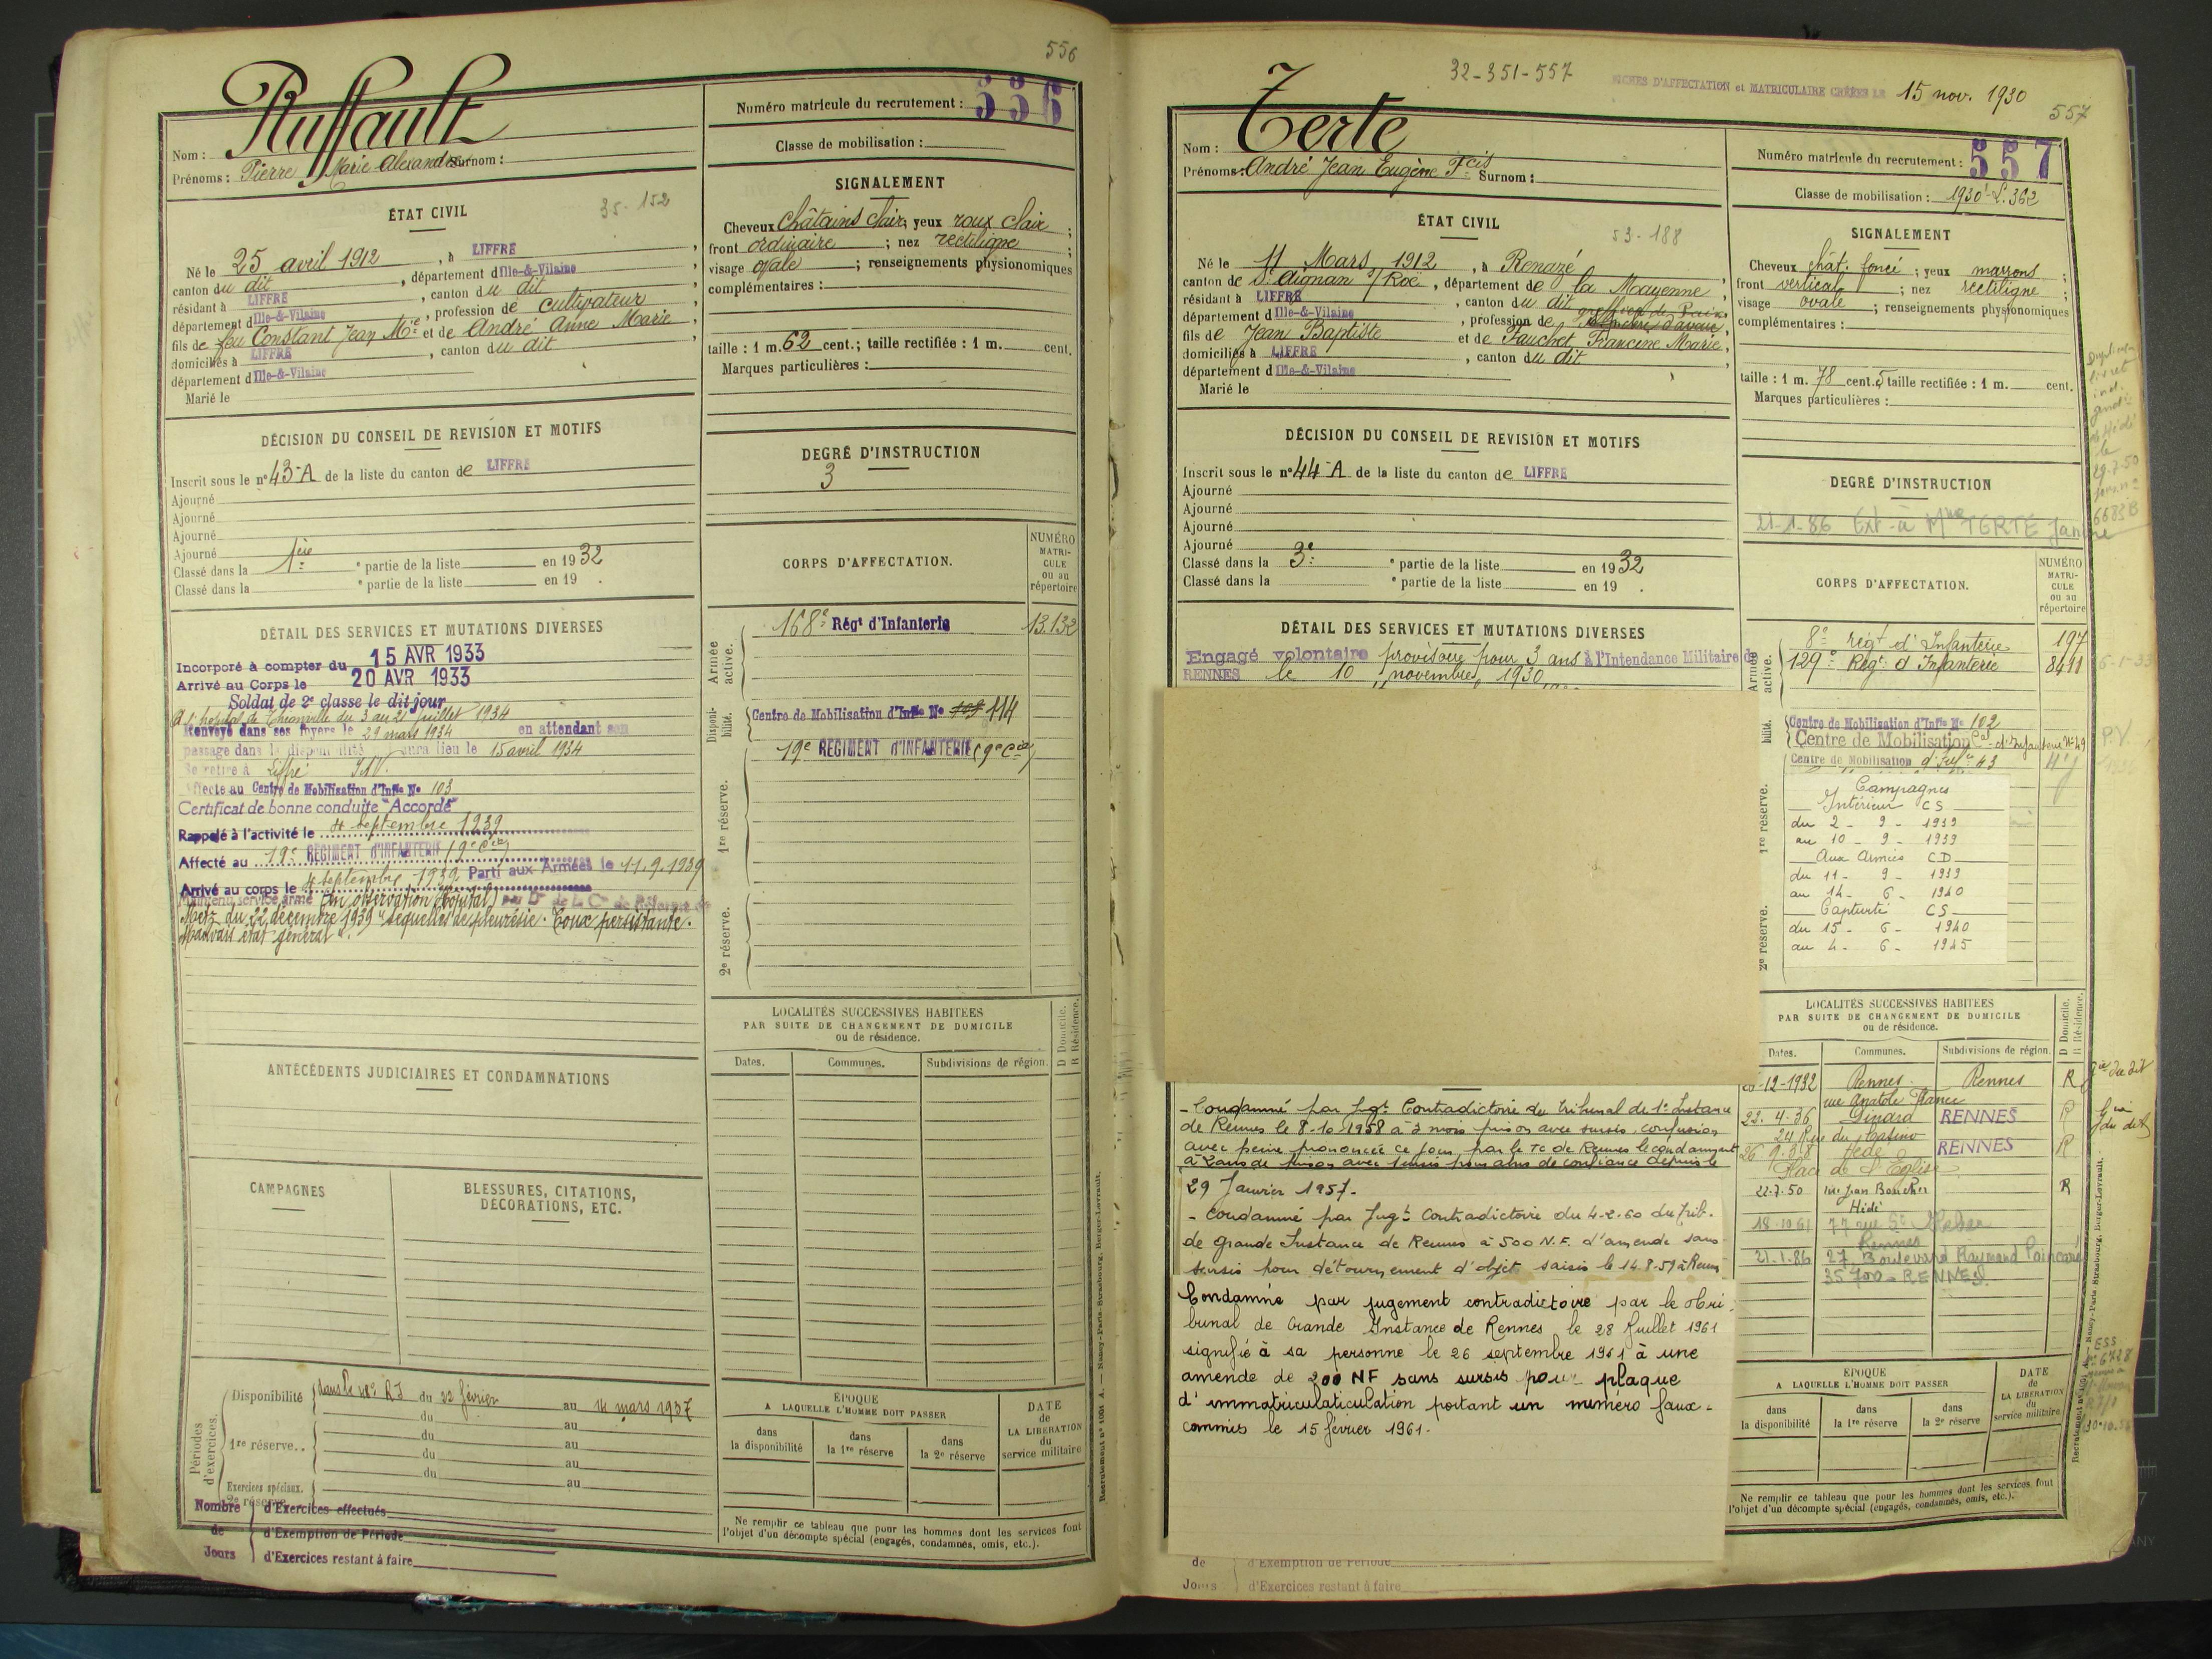 556
Ruffault
Nom :
Prénoms : Pierre Marie Alexandre Surnom :
Numéro matricule du recrutement : 556
Classe de mobilisation :
ÉTAT CIVIL
35-152
Né le 25 avril 1912, à LIFFRÉ,
canton du dit, département d'Ille-&-Vilaine,
résidant à LIFFRÉ, canton du dit,
département d'Ille-&-Vilaine, profession de cultivateur,
fils de feu Constant Jean Mie et de André Anne Marie,
domiciliés à LIFFRÉ, canton du dit
département d'Ille-&-Vilaine
Marié le
SIGNALEMENT
Cheveux châtains clair, yeux roux clair ;
front ordinaire ; nez rectiligne ;
visage ovale ; renseignements physionomiques
complémentaires :
taille : 1 m. 62 cent.; taille rectifiée : 1 m. cent.
Marques particulières :
DÉCISION DU CONSEIL DE REVISION ET MOTIFS
Inscrit sous le n° 43-A de la liste du canton de LIFFRÉ
Ajourné
Ajourné
Ajourné
Ajourné
Classé dans la 1ère e partie de la liste en 1932
Classé dans la e partie de la liste en 19 .
DEGRÉ D'INSTRUCTION
3
DÉTAIL DES SERVICES ET MUTATIONS DIVERSES
Incorporé à compter du 15 AVR 1933
Arrivé au Corps le 20 AVR 1933
Soldat de 2e classe le dit jour
à l'hôpital de Thionville du 3 au 21 juillet 1934
Renvoyé dans ses foyers le 29 mars 1934 en attendant son
passage dans la disponibilité aura lieu le 15 avril 1934
Se retire à Liffré
Affecté au Centre de Mobilisation d'Infie No 103
Certificat de bonne conduite "Accordé"
Rappelé à l'activité le 4 septembre 1939
Affecté au 19e RÉGIMENT D'INFANTERIE (9e Cie)
Arrivé au corps le 4 septembre 1939 Parti aux Armées le 11.9.1939
Maintenu service armé (en observation hôpital) par Don de la Con de Réforme de
Metz du 22 décembre 1939 "séquelles de pleurésie. Toux persistante.
Mauvais état général".
CORPS D'AFFECTATION.
NUMÉRO MATRICULE ou au répertoire
Armée active.
168e Régt d'Infanterie 13.132
Disponibilité.
Centre de Mobilisation d'Infie No 103 114
1re réserve.
19e RÉGIMENT D'INFANTERIE (9e Cie)
2e réserve.
LOCALITÉS SUCCESSIVES HABITÉES
PAR SUITE DE CHANGEMENT DE DOMICILE
ou de résidence.
D Domicile. R Résidence.
Dates. Communes. Subdivisions de région.
ANTÉCÉDENTS JUDICIAIRES ET CONDAMNATIONS
CAMPAGNES
BLESSURES, CITATIONS,
DÉCORATIONS, ETC.
Périodes d'exercices.
Disponibilité dans le 41e R.I. du 22 février au 14 mars 1937
du au
1re réserve.. du au
du au
du au
Exercices spéciaux.
2e réserve
Nombre de Jours
d'Exercices effectués
d'Exemption de Période
d'Exercices restant à faire
ÉPOQUE
A LAQUELLE L'HOMME DOIT PASSER
dans la disponibilité
dans la 1re réserve
dans la 2e réserve
DATE de LA LIBÉRATION du service militaire
Ne remplir ce tableau que pour les hommes dont les services font
l'objet d'un décompte spécial (engagés, condamnés, omis, etc.).
Recrutement n° 1004 A. — Nancy-Paris-Strasbourg, Berger-Levrault.
32-351-557
FICHES D'AFFECTATION et MATRICULAIRE CRÉÉES LE 15 nov. 1930
557
Terte
Nom :
Prénoms : André Jean Eugène Fcis Surnom :
Numéro matricule du recrutement : 557
Classe de mobilisation : 1930
ÉTAT CIVIL
53-188
Né le 11 Mars 1912, à Renazé,
canton de St Aignan s/ Roë, département de la Mayenne,
résidant à LIFFRÉ, canton du dit
département d'Ille-&-Vilaine, profession de greffier de Paix
fils de Jean Baptiste et de Fauchet Francine Marie,
domiciliés à LIFFRÉ, canton du dit
département d'Ille-&-Vilaine
Marié le
SIGNALEMENT
Cheveux chât. foncé ; yeux marrons ;
front vertical ; nez rectiligne ;
visage ovale ; renseignements physionomiques
complémentaires :
taille : 1 m. 78 cent. 5 taille rectifiée : 1 m. cent.
Marques particulières :
DÉCISION DU CONSEIL DE REVISION ET MOTIFS
Inscrit sous le n° 44-A de la liste du canton de LIFFRÉ
Ajourné
Ajourné
Ajourné
Ajourné
Classé dans la 3e e partie de la liste en 1932
Classé dans la e partie de la liste en 19 .
DEGRÉ D'INSTRUCTION
21-1-86 Ext. à Mme TERTE Janine
29-7-50
6683B
DÉTAIL DES SERVICES ET MUTATIONS DIVERSES
Engagé volontaire provisoire pour 3 ans à l'Intendance Militaire de
RENNES le 10 novembre 1930
CORPS D'AFFECTATION.
NUMÉRO MATRICULE ou au répertoire
Armée active.
8e régt d'Infanterie 197
129e Régt d'Infanterie 8411
Centre de Mobilisation d'Infie No 102
Centre de Mobilisation Cal d'Infanterie No 49
Centre de Mobilisation d'Infie 43
P.V.
1re réserve.
2e réserve.
Campagnes
Intérieur CS
du 2 - 9 - 1939
au 10 - 9 - 1939
Aux Armées CD
du 11 - 9 - 1939
au 14 - 6 - 1940
Captivité CS
du 15 - 6 - 1940
au 4 - 6 - 1945
LOCALITÉS SUCCESSIVES HABITÉES
PAR SUITE DE CHANGEMENT DE DOMICILE
ou de résidence.
D Domicile. R Résidence.
Dates. Communes. Subdivisions de région.
-12-1932 Rennes Rennes R
rue Anatole France
22.4.36 Dinard RENNES R
24 Rue du Casino
26.9.38 Hédé RENNES R
Place de l'Église
22.7.50 rue Jean Boucher R
Hédé
18.10.61 77 rue St Hélier
Rennes
21.1.86 27 Boulevard Raymond Poincaré
35700 - RENNES.
- Condamné par Jugt Contradictoire du tribunal de 1e Instance
de Rennes le 8-10-1958 à 3 mois prison avec sursis confusion
avec peine prononcée ce jour par le TC de Rennes le condamnant
à 2 ans de prison avec sursis pour abus de confiance depuis le
29 Janvier 1957.
- Condamné par Jugt Contradictoire du 4-2-60 du Trib.
de Grande Instance de Rennes à 500 N.F. d'amende sans
sursis pour détournement d'objet saisis le 14.8.59 à Rennes
Condamné par jugement contradictoire par le Tri-
bunal de Grande Instance de Rennes le 28 Juillet 1961
signifié à sa personne le 26 septembre 1961 à une
amende de 200 NF sans sursis pour plaque
d'immatriculaticulation portant un numéro faux-
commis le 15 février 1961.
ÉPOQUE
A LAQUELLE L'HOMME DOIT PASSER
dans la disponibilité
dans la 1re réserve
dans la 2e réserve
DATE de LA LIBÉRATION du service militaire
Ne remplir ce tableau que pour les hommes dont les services font
l'objet d'un décompte spécial (engagés, condamnés, omis, etc.).
de d'Exemption de Période
Jours d'Exercices restant à faire